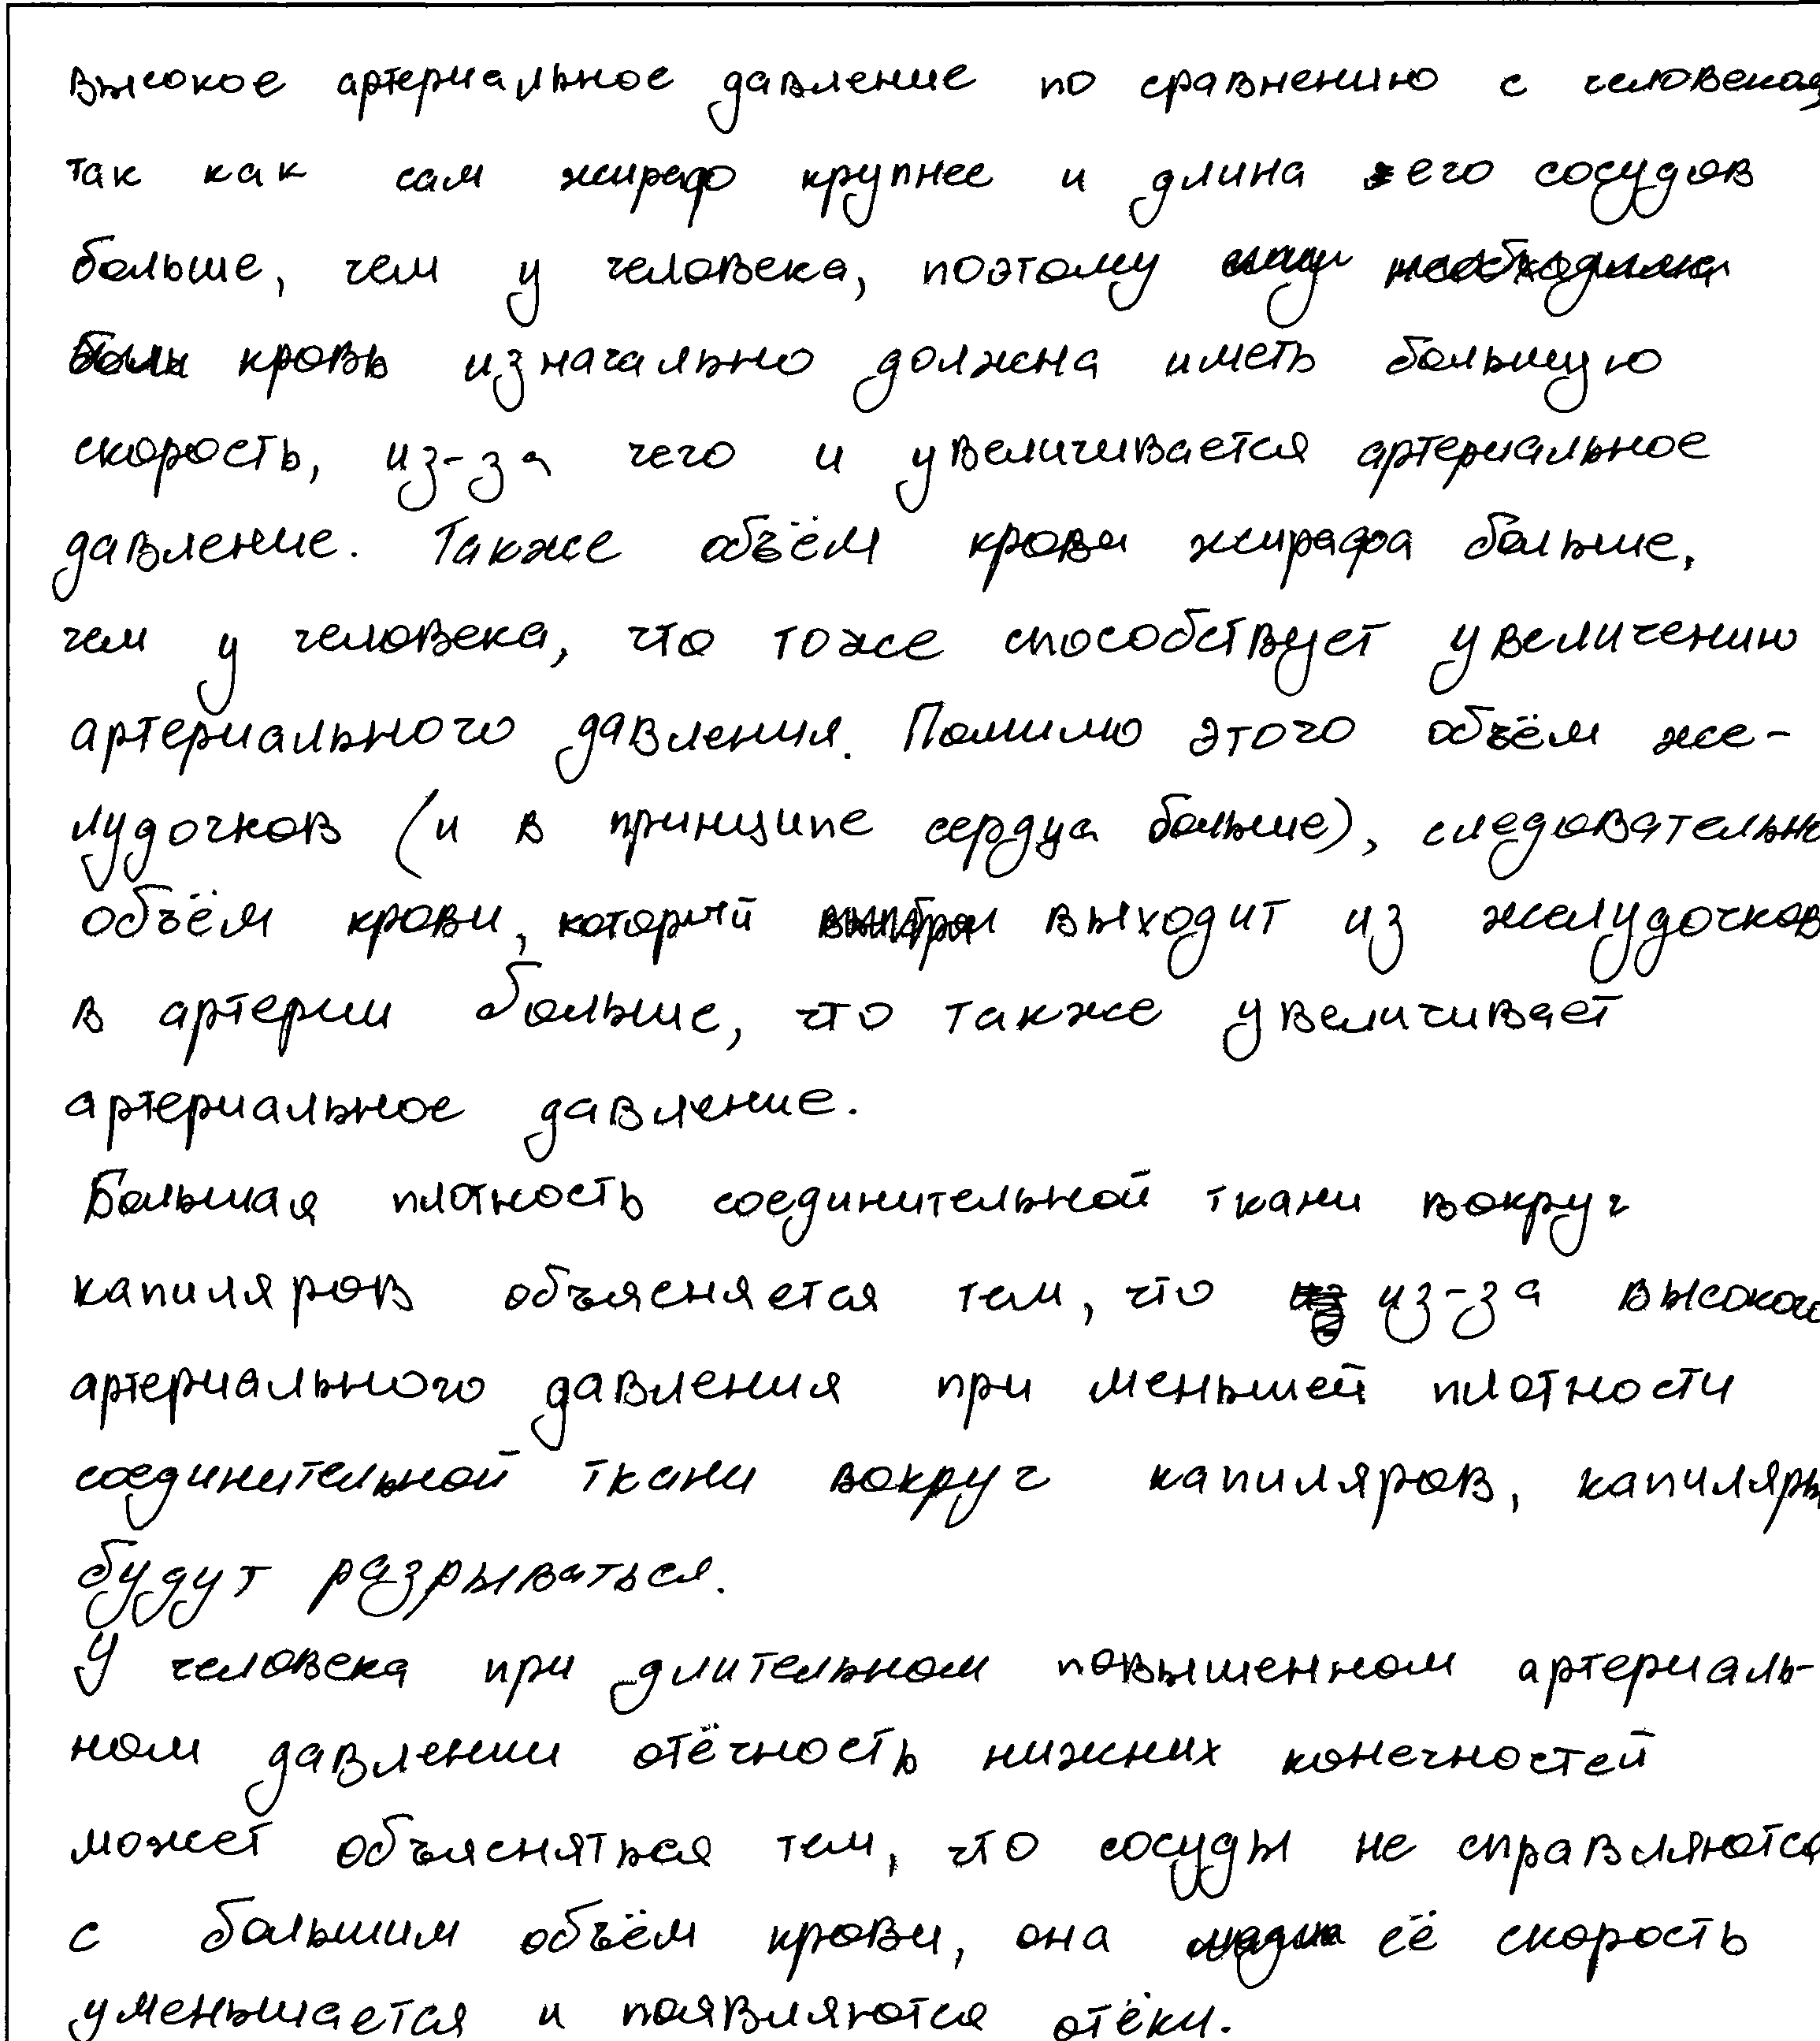 высокое артериальное давление по сравнению с человеком,
так как сам жираф крупнее и длина его сосудов
больше, чем у человека, поэтому
кровь изначально должна иметь большую
скорость, из-за чего и увеличивается артериальное
давление. Также объём крови жирафа больше,
чем у человека, что тоже способствует увеличению
артериального давления. Помимо этого объём же-
лудочков (и в принципе сердца больше), следовательно
объём крови, который выходит из желудочков
в артерии больше, что также увеличивает
артериальное давление.
Большая плотность соединительной ткани вокруг
капиляров объясняется тем, что из-за высокого
артериального давления при меньшей плотности
соединительной ткани вокруг капиляров, капиляры
будут разрываться.
У человека при длительном повышенном артериаль-
ном давлении отёчность нижних конечностей
может объясняться тем, что сосуды не справляются
с большим объём крови, она её скорость
уменьшается и появляются отёки.